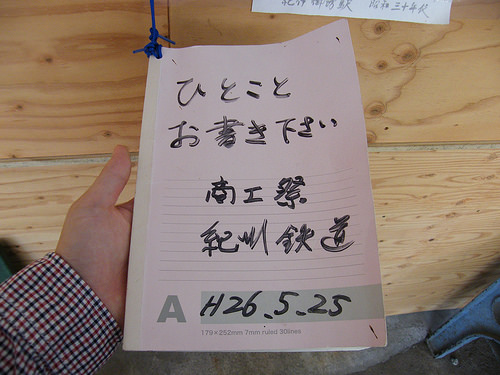 紀伊御坊駅 昭和三十年代
ひとこと
お書き下さい
商工祭
紀州鉄道
A H26.5.25
179×252mm 7mm ruled 30lines